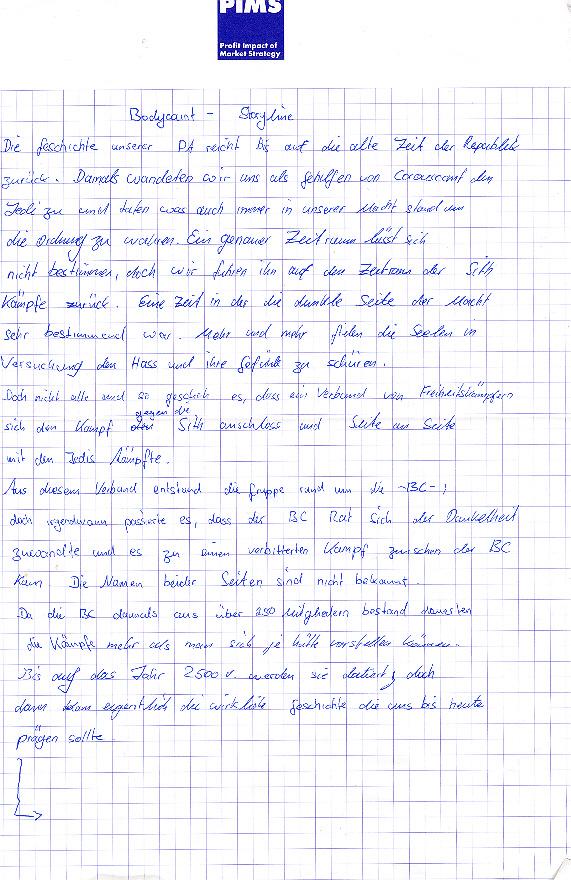 PIMS
Profit Impact of
Market Strategy
Bodycount - Storyline
Die Geschichte unserer PA reicht bis auf die alte Zeit der Republik
zurück. Damals wandeten wir uns als gehilfen von Corouscant den
Jedi zu und taten was auch immer in unserer Macht stand um
die Ordnung zu wahren. Ein genauer Zeitraum lässt sich
nicht bestimmen, doch wir führen ihn auf den Zeitraum der Sith
Kämpfe zurück. Eine Zeit in der die dunkle Seite der Macht
sehr bestimmend war. Mehr und mehr fielen die Seelen in
Versuchung den Hass und ihre Gefühle zu schüren.
Doch nicht alle und so geschieht es, dass ein Verband von Freiheitskämpfern
gegen die
sich den Kampf den Sith anschloss und Seite an Seite
mit den Jedis kämpfte.
Aus diesem Verband entstand die Gruppe rund um die -BC- !
doch irgendwann passierte es, dass der BC Rat sich der Dunkelheit
zuwandte und es zu einen verbitterten Kampf zwischen der BC
kam. Die Namen beider Seiten sind nicht bekannt.
Da die BC damals aus über Mitgliedern bestand dauerten
die Kämpfe mehr als man sich je hätte vorstellen können.
Bis auf das Jahr 2500 v. werden sie datiert, doch
dann kam eigentlich die wirkliche Geschichte die uns bis heute
prägen sollte.